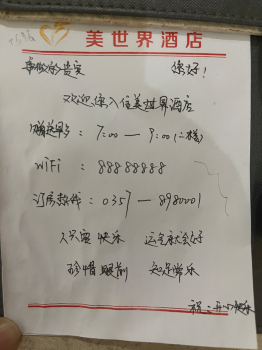 美世界酒店
尊敬的贵宾 您好！
欢迎您入住美世界酒店
7:00 — 9:00 (二楼)
WiFi : 88888888
订房热线 : 0357 — 8980001
人只要快乐 运气就会好
珍惜眼前 知足常乐
祝 : 开心快乐